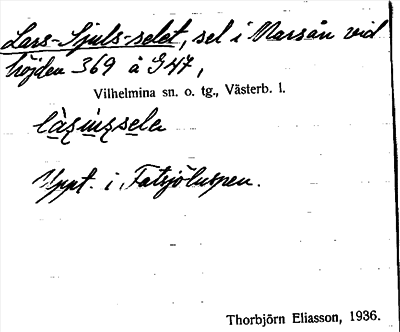 Lars-Sjuls-selet, sel i Marsån vid
höjden 369 å G47,
Vilhelmina sn. o. tg., Västerb. l.
Uppt. i Fatsjöluspen.
Thorbjörn Eliasson, 1936.